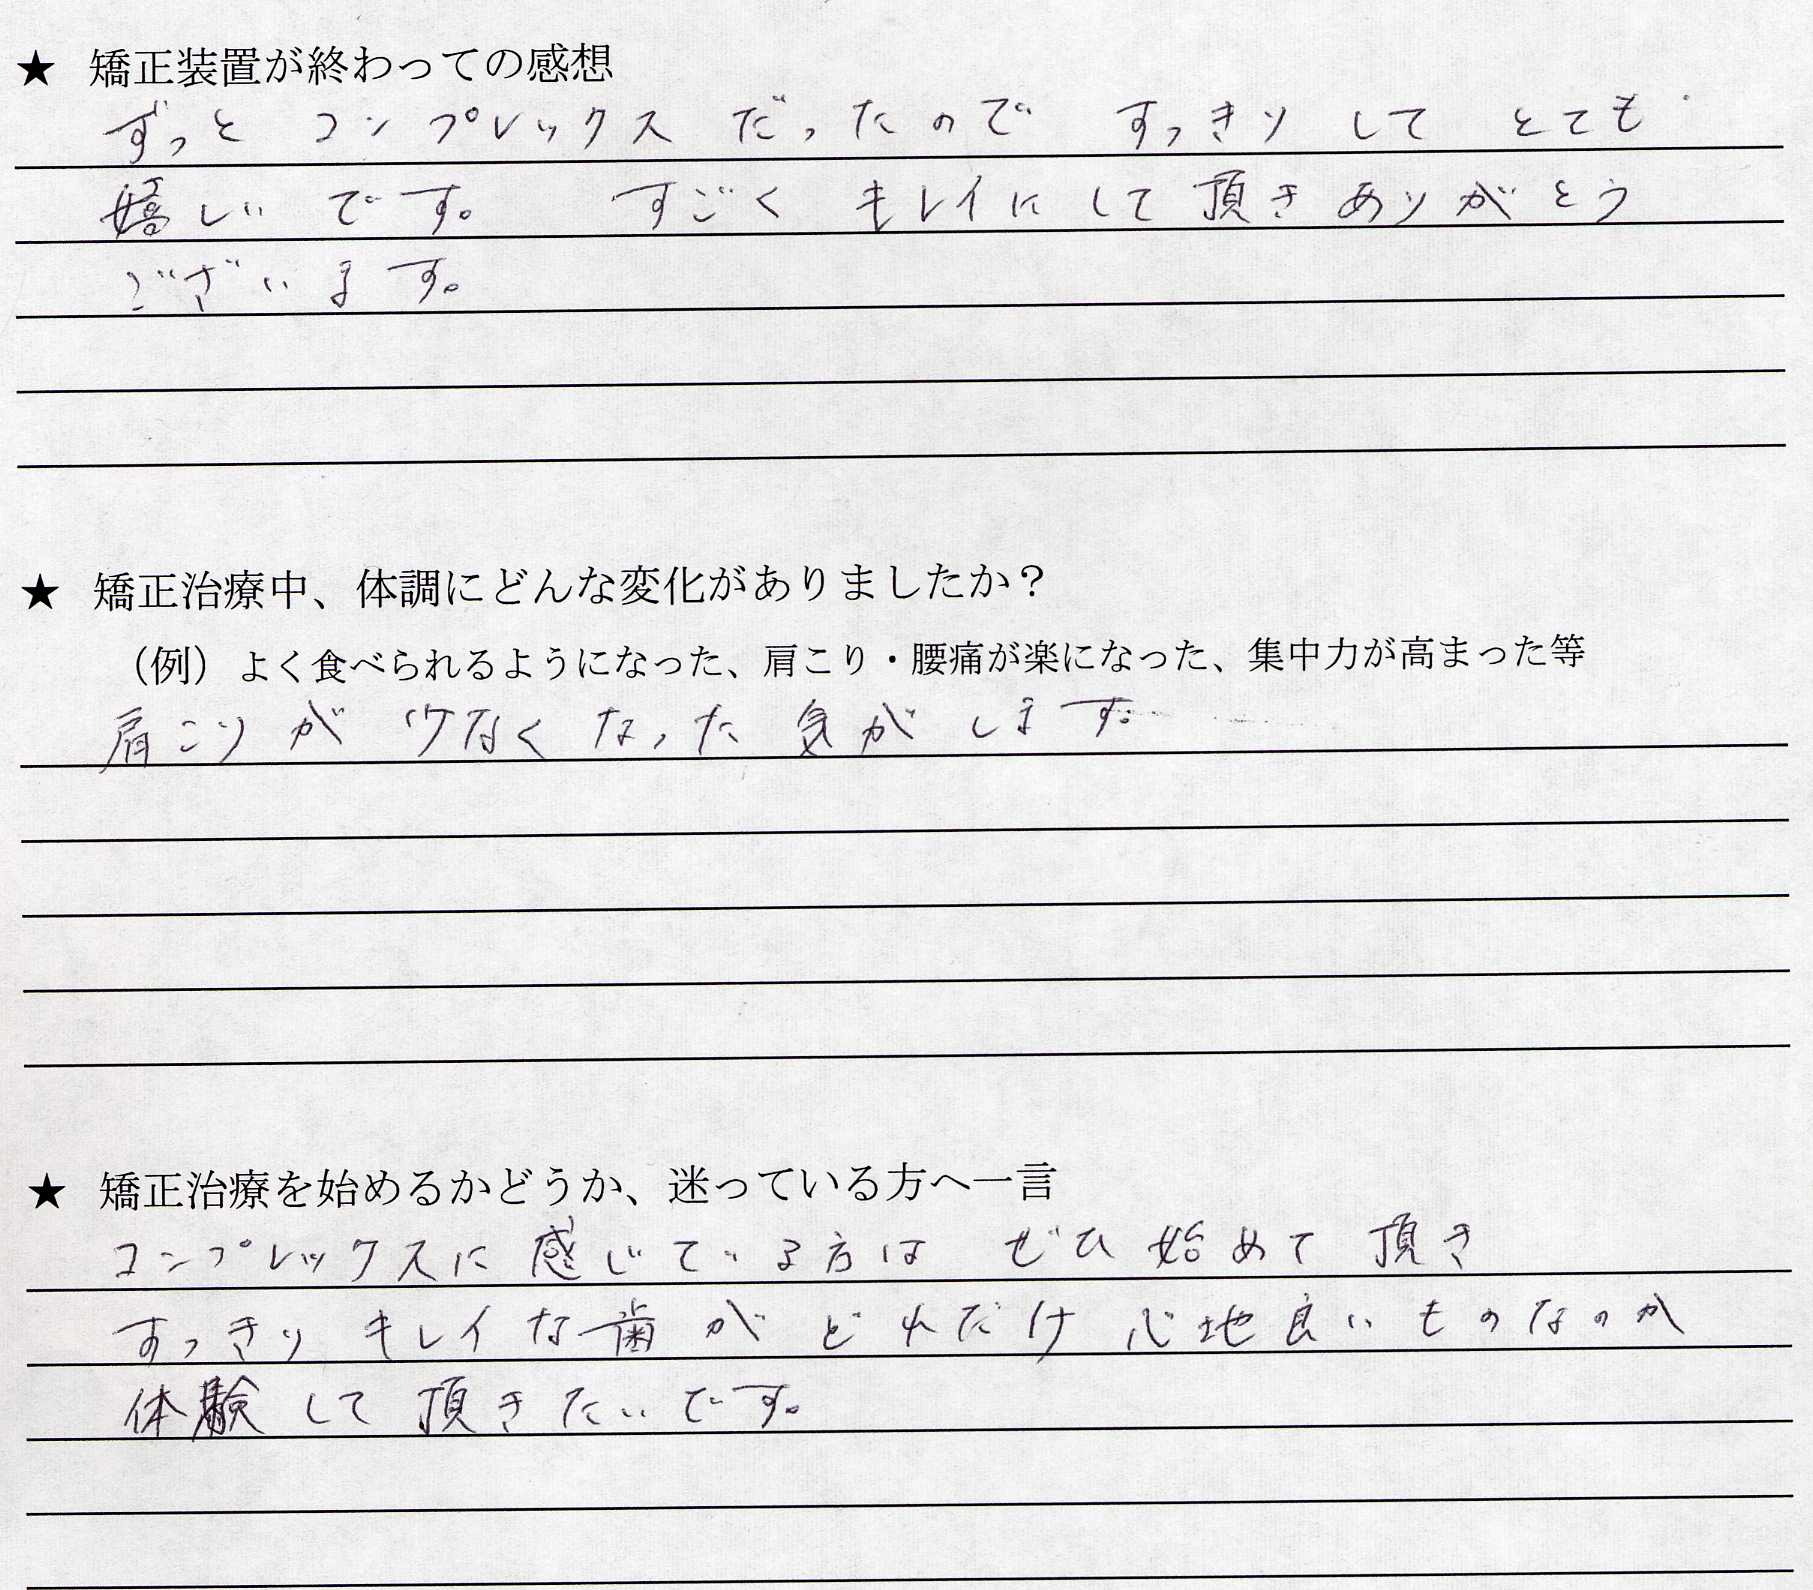 ★ 矯正装置が終わっての感想
ずっと コンプレックス だったので すっきり して とても
嬉しい です。 すごく キレイに して 頂き ありがとう
ございます。
★ 矯正治療中、体調にどんな変化がありましたか？
（例）よく食べられるようになった、肩こり・腰痛が楽になった、集中力が高まった等
肩こりが 少なく なった 気が します。
★ 矯正治療を始めるかどうか、迷っている方へ一言
コンプレックスに 感じている方は ぜひ 始めて 頂き
すっきり キレイな歯が どれだけ 心地良いものなのか
体験 して 頂きたいです。